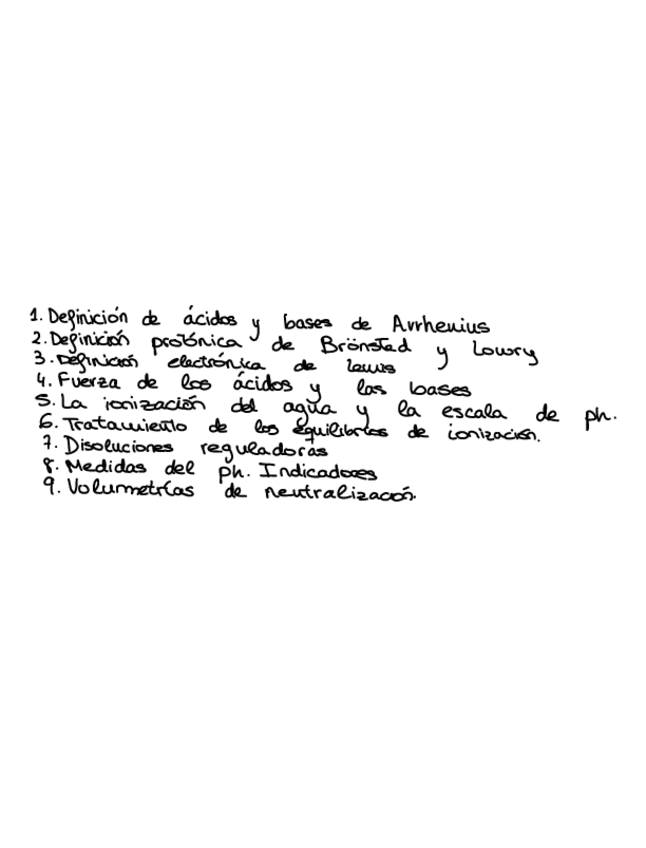 1. Definición de ácidos y bases de Arrhenius
2. Definición protónica de Brönsted y Lowry
3. Definición electrónica de lewis
4. Fuerza de los ácidos y las bases
5. La ionización del agua y la escala de ph.
6. Tratamiento de los equilibrios de ionización.
7. Disoluciones reguladoras
8. Medidas del ph. Indicadores
9. Volumetrías de neutralización.